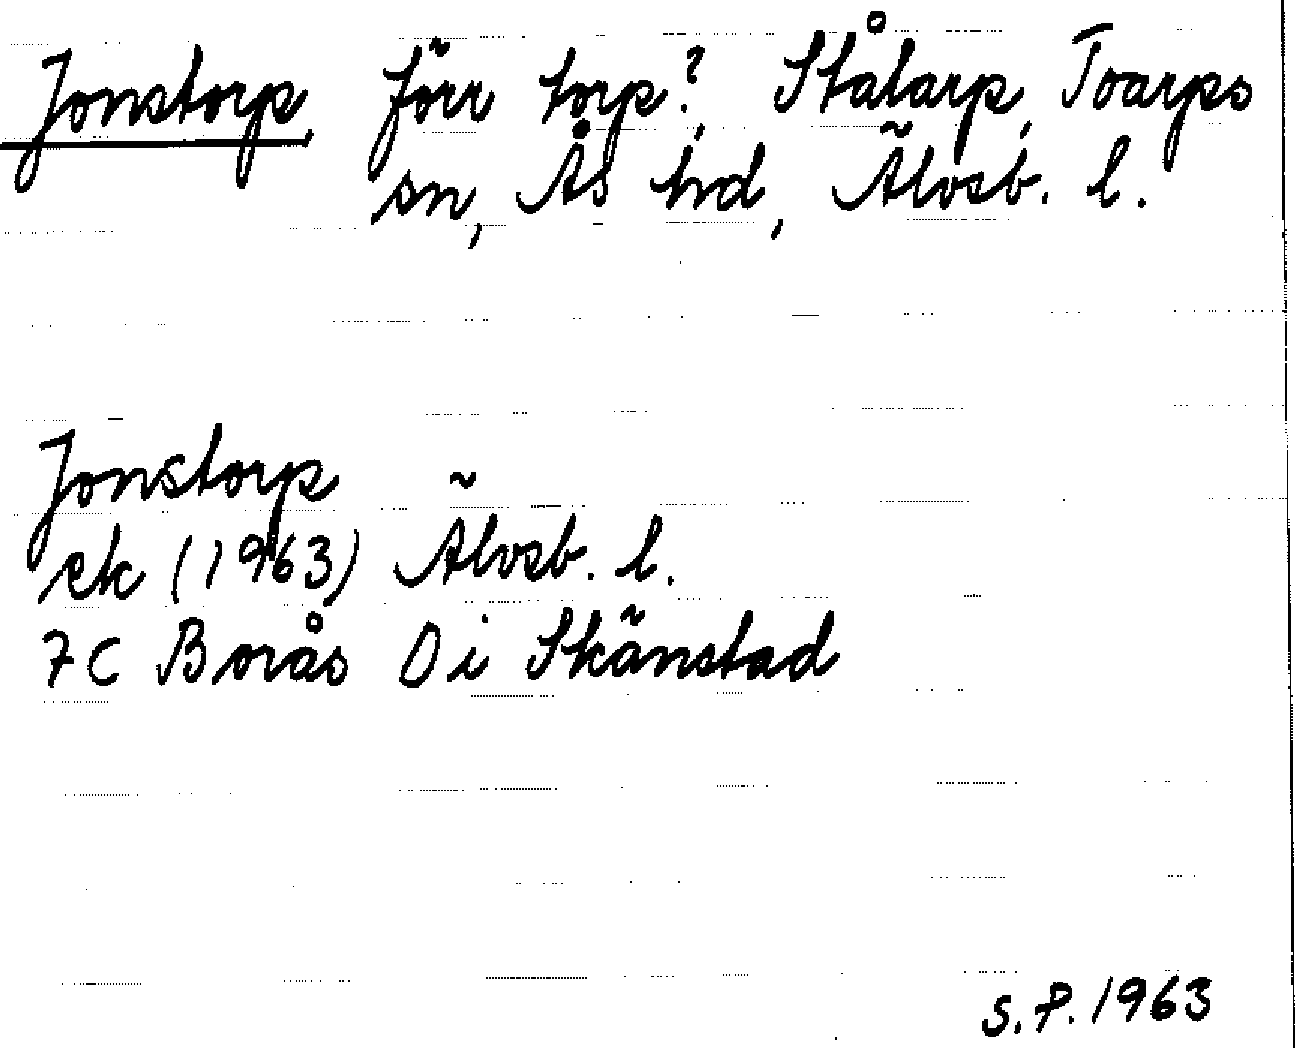 Jonstorp, förr torp?, Stålarp, Toarps
sn, Ås hd, Älvsb. l.
Jonstorp
ek (1963) Älvsb. l.
7C Borås 0i Skänstad
S.P. 1963